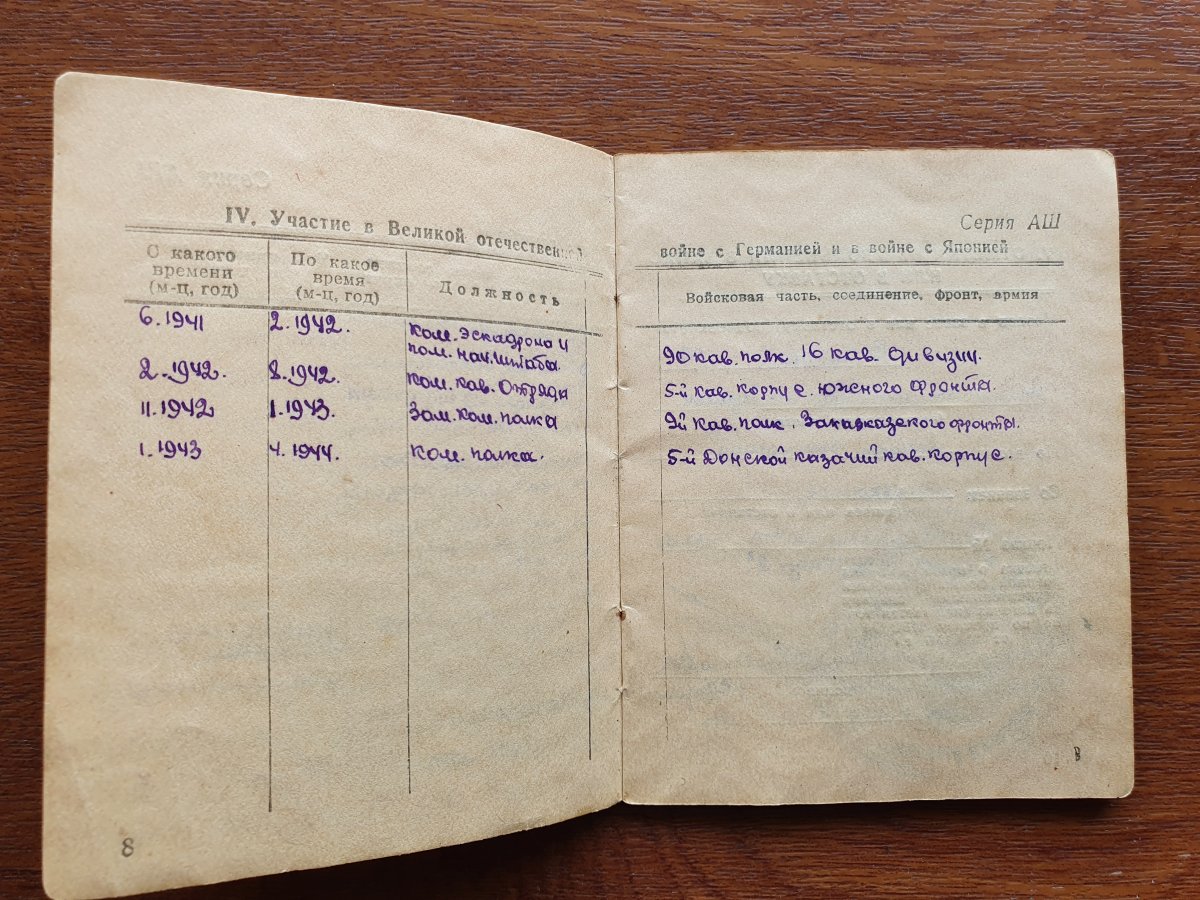 IV. Участие в Великой отечественной
С какого
времени
(м-ц, год)
По какое
время
(м-ц, год)
Должность
6.1941
2.1942.
Ком. эскадрона и
пом. нач. штаба.
2.1942.
8.1942.
Ком. кав. отряда
11.1942
1.1943.
Зам. ком. полка
1.1943
4.1944.
Ком. полка.
8
Серия АШ
войне с Германией и в войне с Японией
Войсковая часть, соединение, фронт, армия
90 кав. полк. 16 кав. дивизии.
5-й кав. корпус. Южного фронта.
9й кав. полк. Закавказского фронта.
5-й Донской казачий кав. корпус.